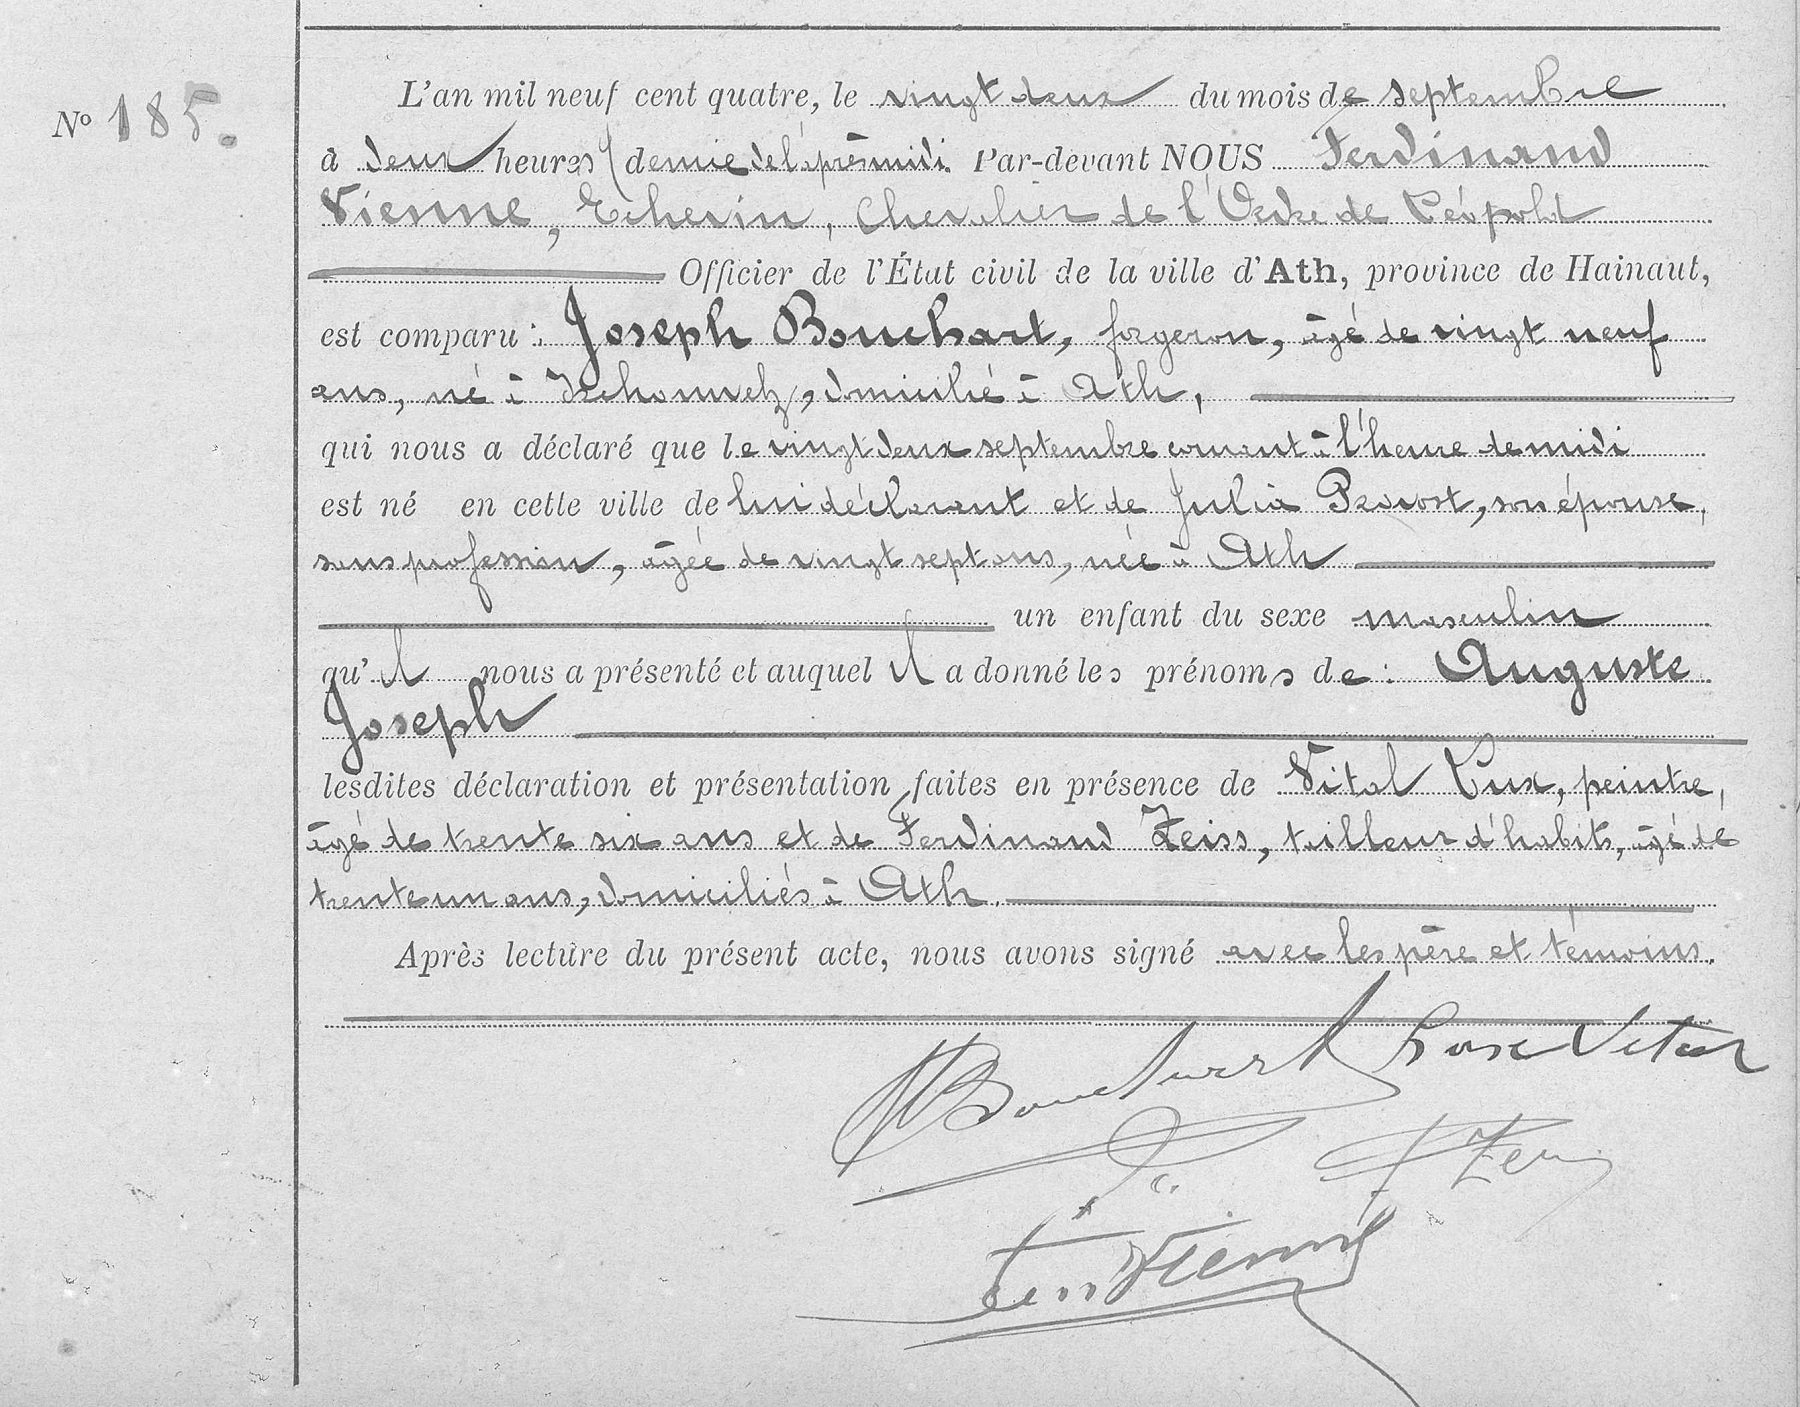 Nº 185.
L'an mil neuf cent quatre, le vingt deux du mois de septembre
à deux heures demie de l'après midi. Par-devant NOUS Ferdinand
Vienne, Echevin, Chevalier de l'Ordre de Léopold
Officier de l'État civil de la ville d'Ath, province de Hainaut,
est comparu : Joseph Bouchart, forgeron, âgé de vingt neuf
ans, né à domicilié à Ath,
qui nous a déclaré que le vingt deux septembre courant à l'heure de midi
est né en cette ville de lui déclarant et de Julia Prevost, son épouse,
sans profession, âgée de vingt sept ans, née à Ath
un enfant du sexe masculin
qu'il nous a présenté et auquel il a donné les prénoms de : Auguste
Joseph
lesdites déclaration et présentation faites en présence de Vital Cux, peintre,
âgé de trente six ans et de Ferdinand Zeiss, tailleur d'habits, âgé de
trente un ans, domiciliés à Ath.
Après lecture du présent acte, nous avons signé avec les père et témoins.
Bouchart Vital
Vienne